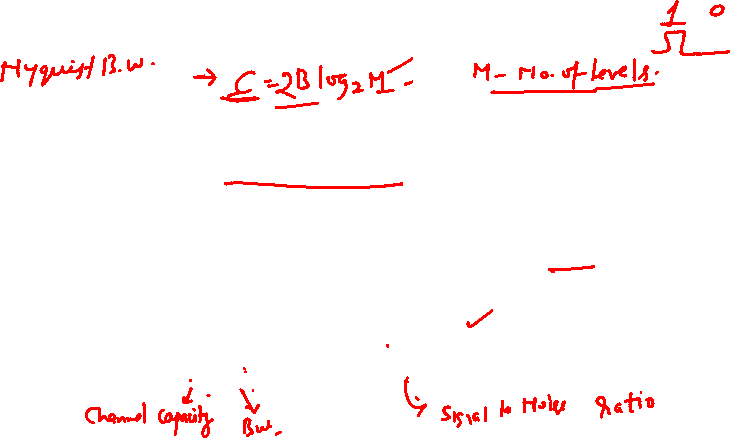 1 0
Nyquist B.W. → C = 2B log₂ M M - No. of Levels.
Channel Capacity BW. Signal to Noise Ratio